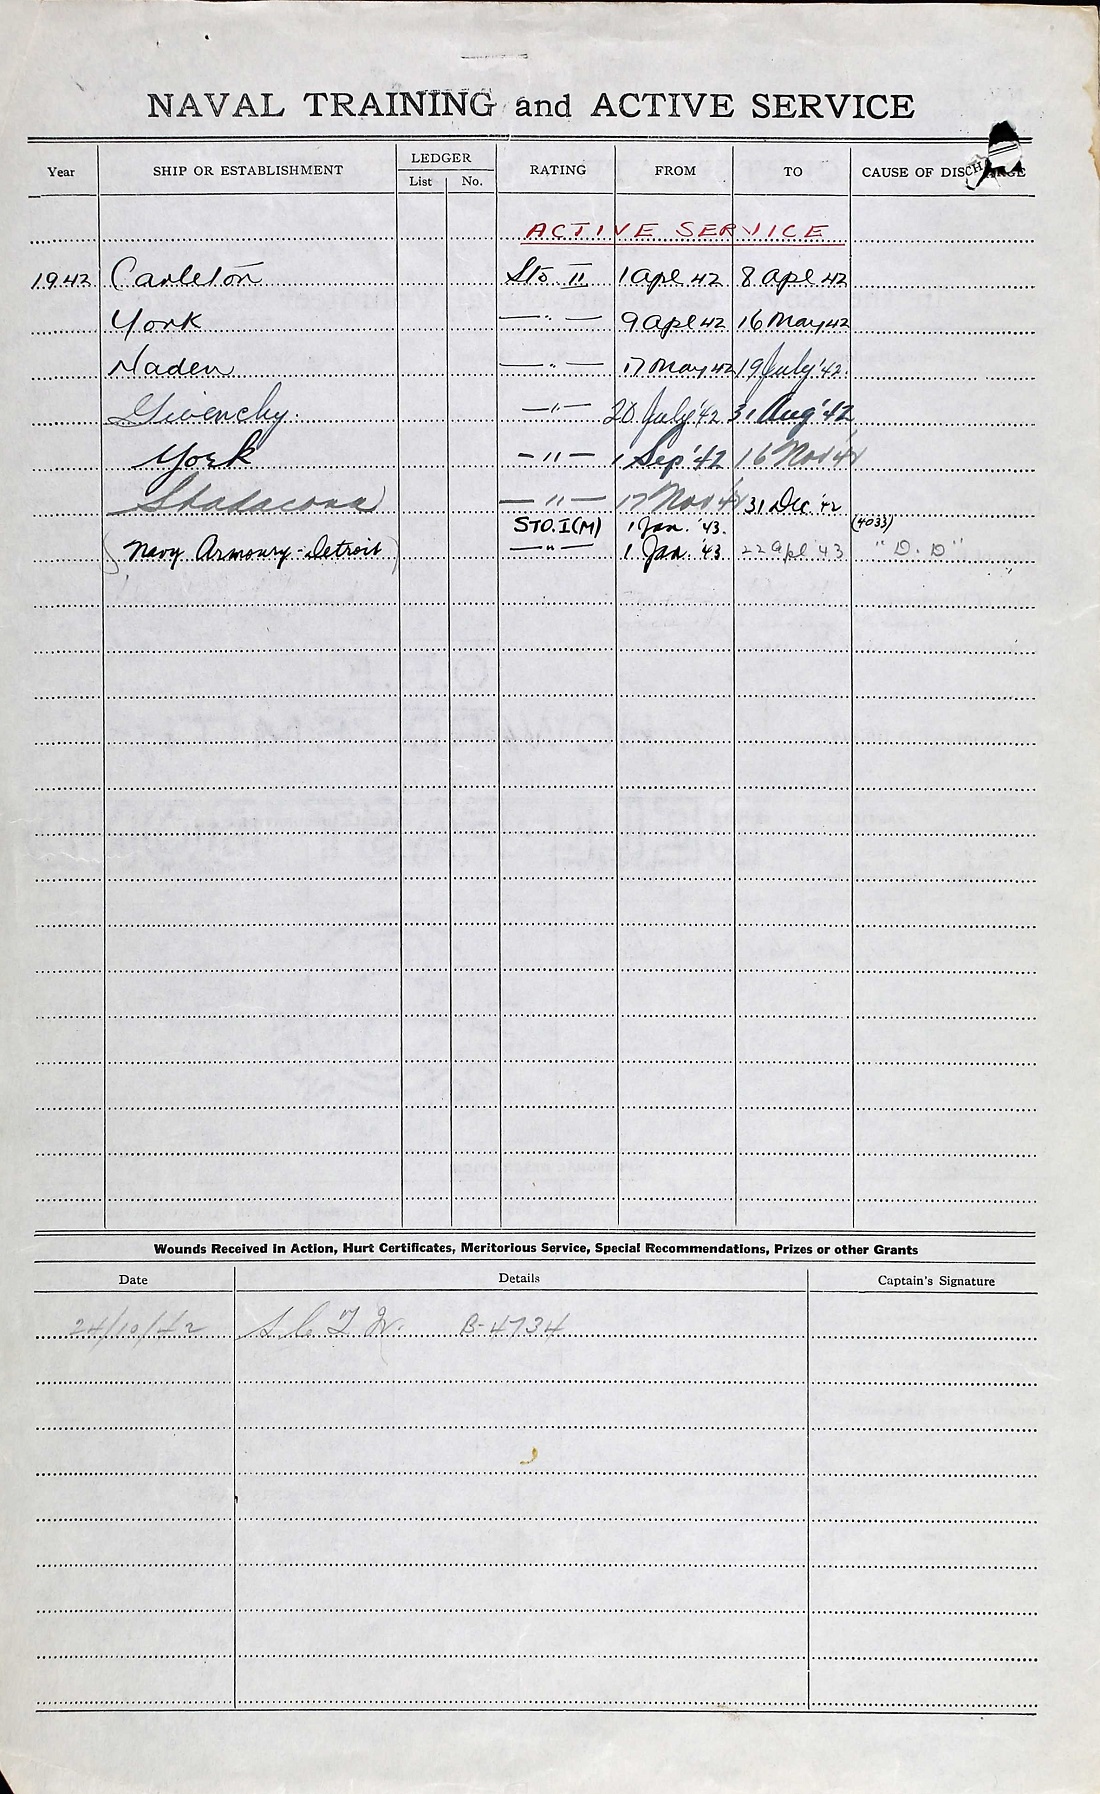 NAVAL TRAINING and ACTIVE SERVICE
Year SHIP OR ESTABLISHMENT LEDGER List No. RATING FROM TO CAUSE OF DISCH
ACTIVE SERVICE
1942 Carleton Sto II 1 Apl 42 8 Apl 42
York —"— 9 Apl 42 16 May 42
Naden —"— 17 May 42 19 July '42.
Givenchy. —"— 20 July '42 31 Aug '42
York —"— 1 Sep '42 16 Nov
Stadacona —"— 17 Nov 31 Dec '42
STO. I (M) 1 Jan. '43. (4033)
(Navy Armoury - Detroit) —"— 1 Jan. '43 22 Apl '43 "D.D"
Wounds Received in Action, Hurt Certificates, Meritorious Service, Special Recommendations, Prizes or other Grants
Date Details Captain's Signature
24/10/42 B-4734